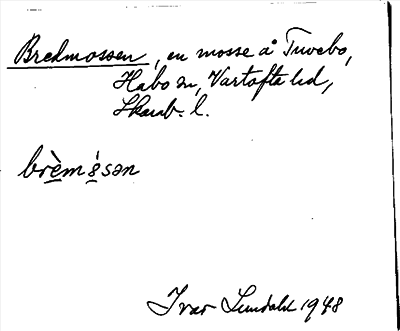 Bredmossen, en mosse å Tuvebo,
Habo sn, Vartofta hd,
Skarab. l.
brèm⁝sən
Ivar Lundahl 1948